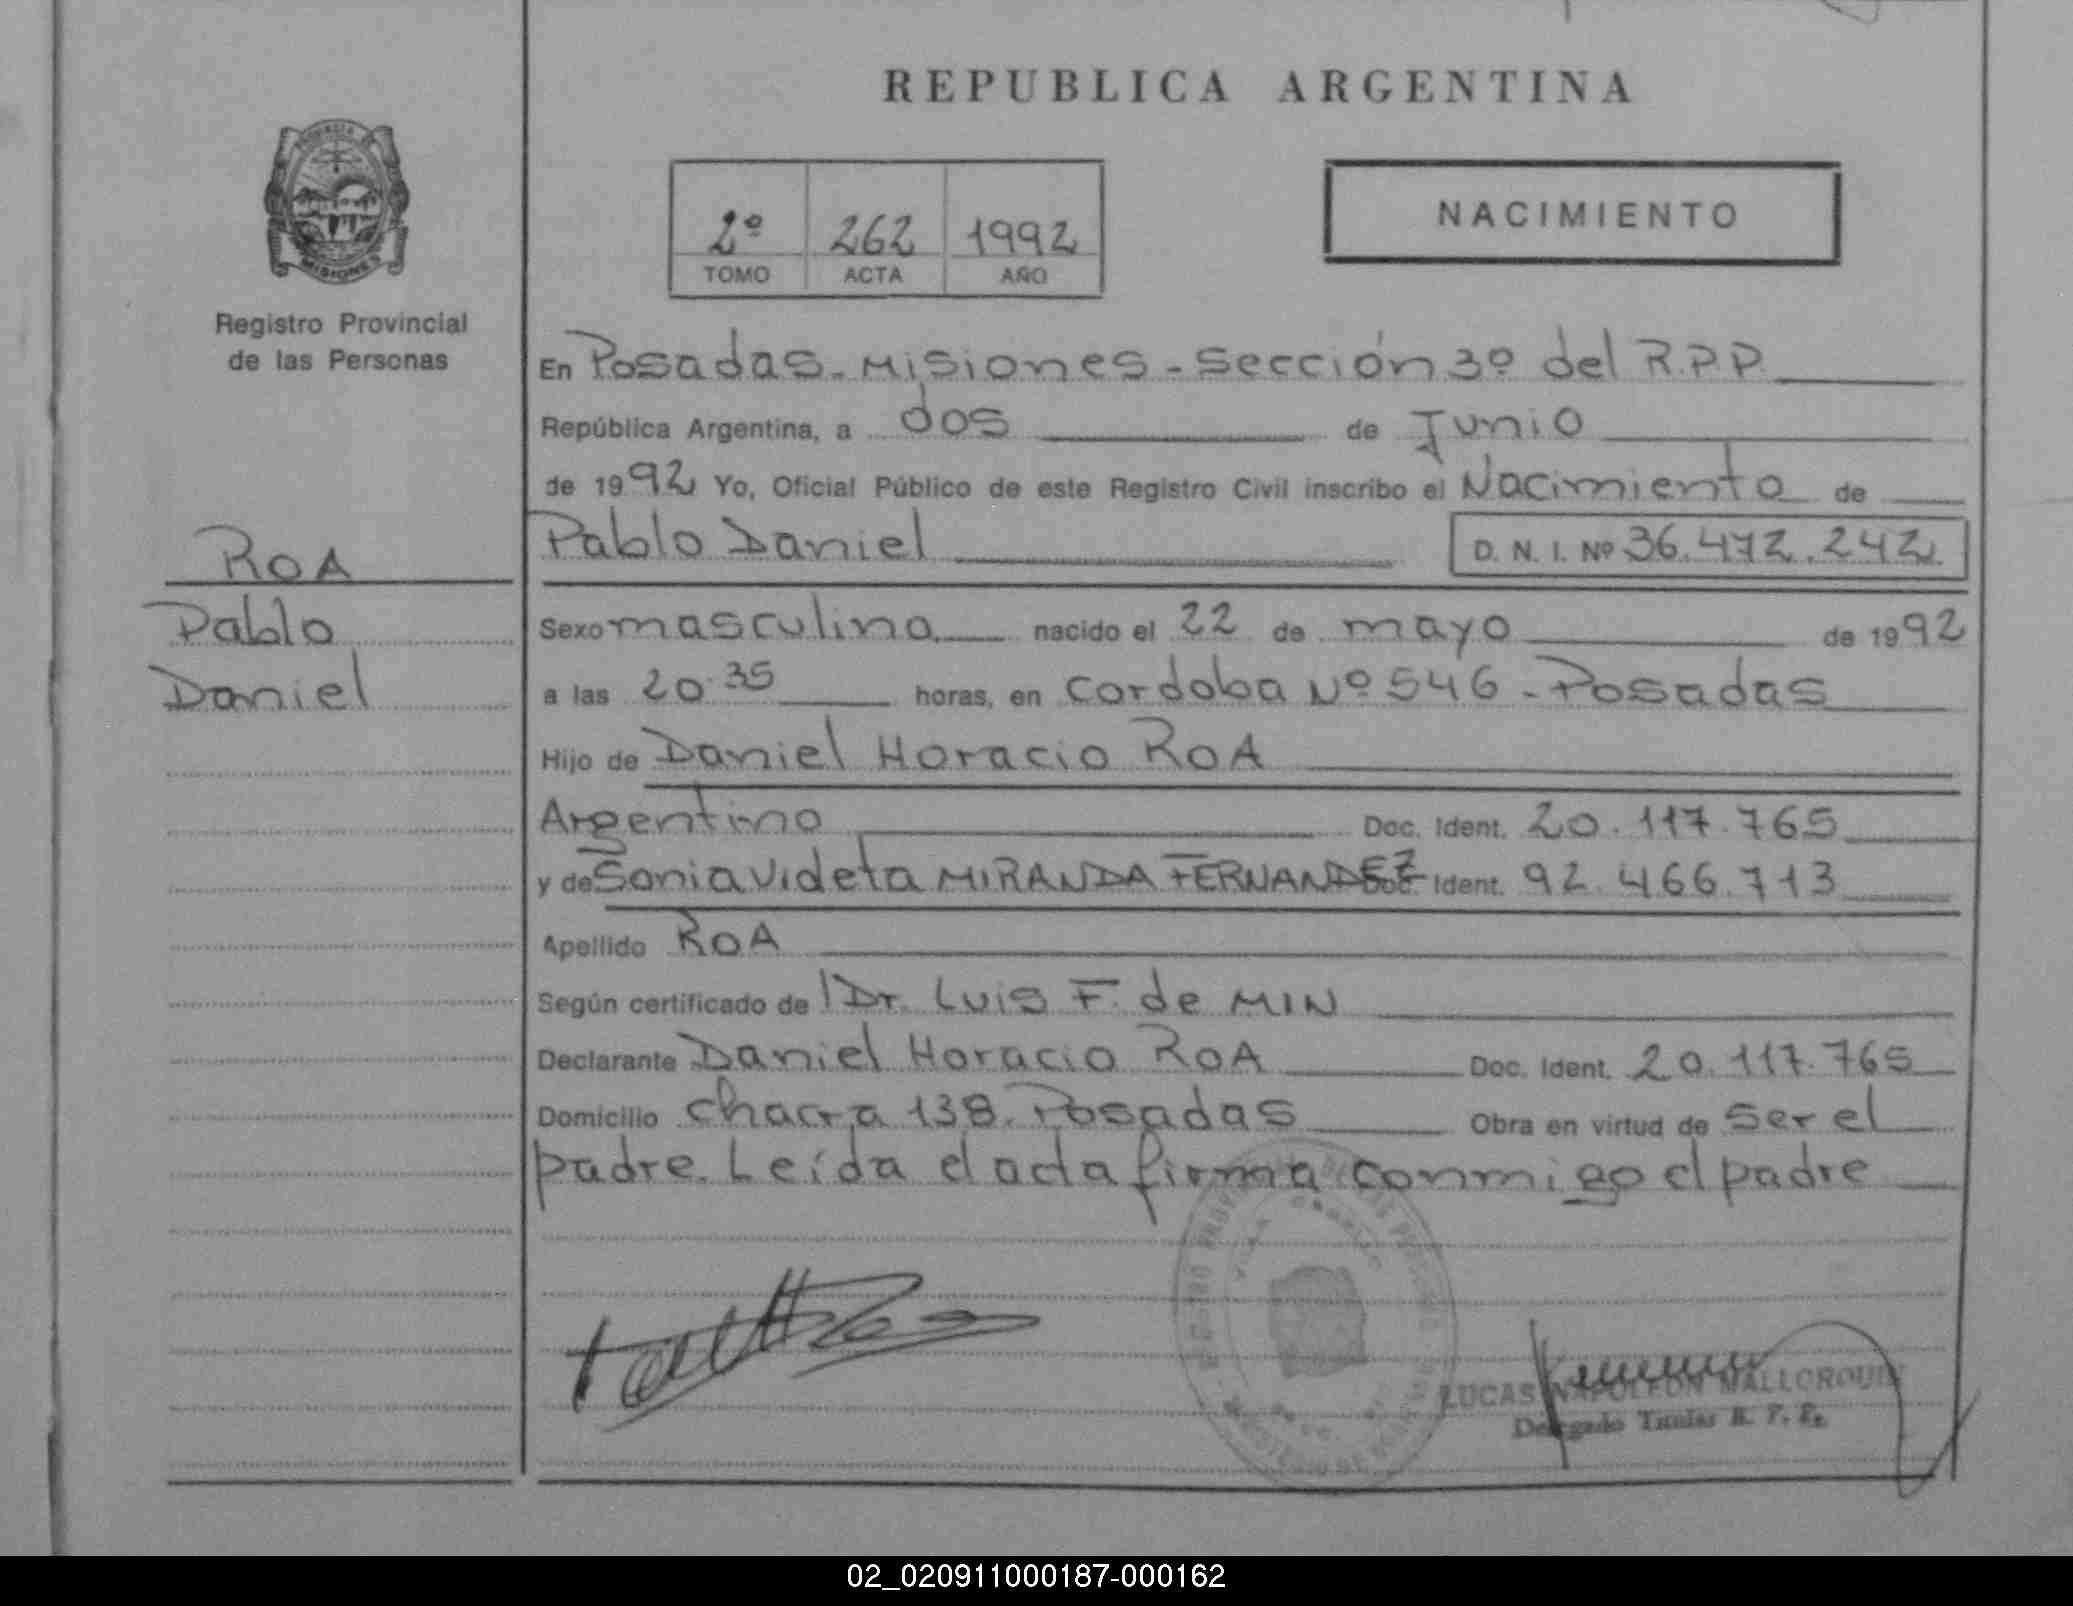 REPUBLICA ARGENTINA
MISIONES
Registro Provincial
de las Personas
2º 262 1992
TOMO ACTA AÑO
NACIMIENTO
En Posadas - Misiones - Sección 3º del R.P.P.
República Argentina, a dos de Junio
de 1992 Yo, Oficial Público de este Registro Civil inscribo el Nacimiento de
Pablo Daniel D. N. I. Nº 36.472.242
ROA
Pablo
Daniel
Sexo masculino nacido el 22 de mayo de 1992
a las 20.35 horas, en Cordoba Nº 546 - Posadas
Hijo de Daniel Horacio ROA
Argentino Doc. Ident. 20.117.765
y de Sonia Videta MIRANDA FERNANDEZ Doc. Ident. 92.466.713
Apellido ROA
Según certificado de Dr. Luis F. de MIN
Declarante Daniel Horacio ROA Doc. Ident. 20.117.765
Domicilio chacra 138. Posadas Obra en virtud de ser el
padre. Leída el acta firma conmigo el padre
LUCAS NAPOLEON
Delegado Titular R. P. P.
02_020911000187-000162